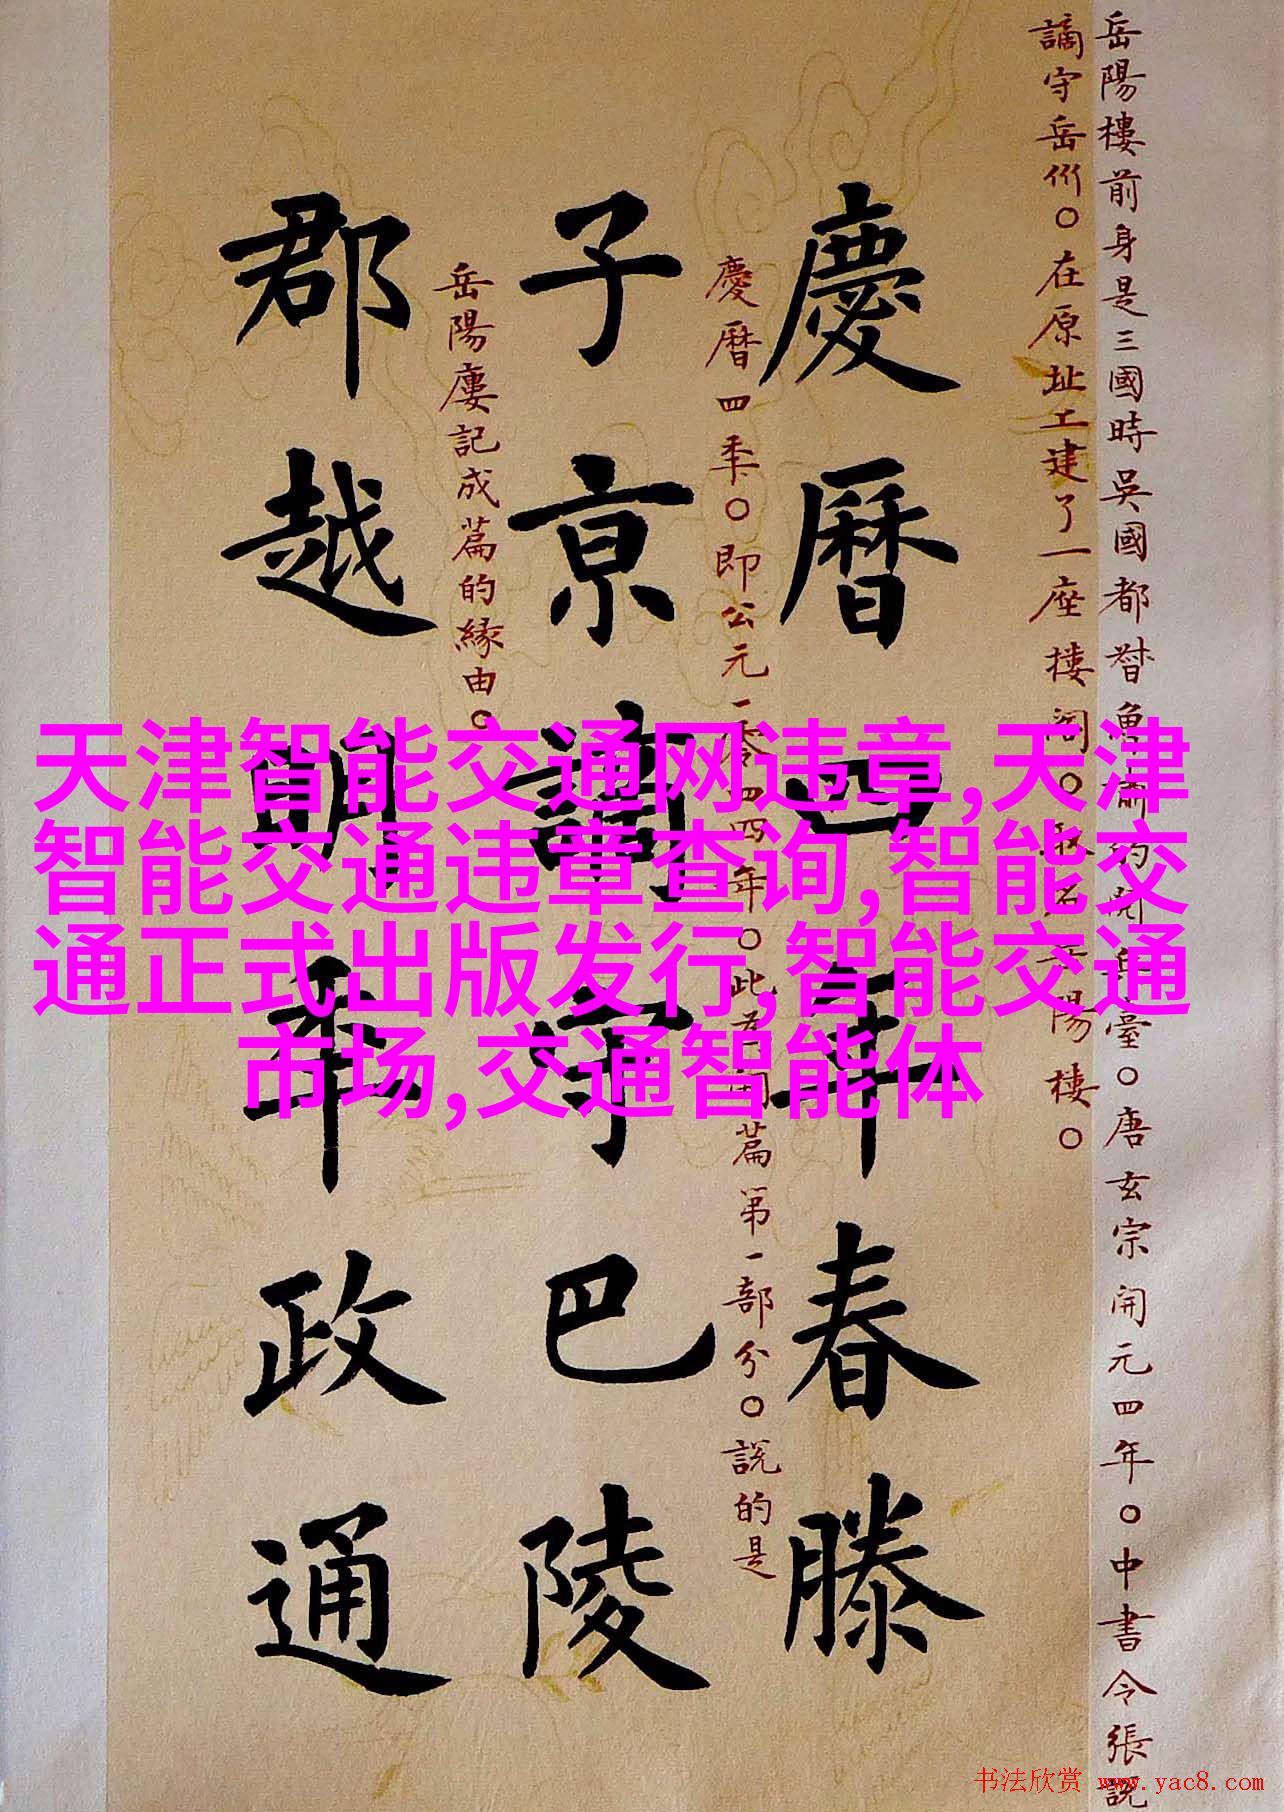 岳陽樓前身是三國時吳國都督魯肅的閱兵臺○唐玄宗開元四年○中書令張說
謫守岳州○在原址上建了一座樓閣○取名岳陽樓○
慶曆四年春滕
慶曆四年○即公元一零四四年○此為開篇第一部分○說的是
子京謫守巴陵
岳陽樓記成篇的緣由○
郡越明年政通
天津智能交通网违章,天津
智能交通违章查询,智能交
通正式出版发行,智能交通
市场,交通智能体
书法欣赏 www.yac8.com